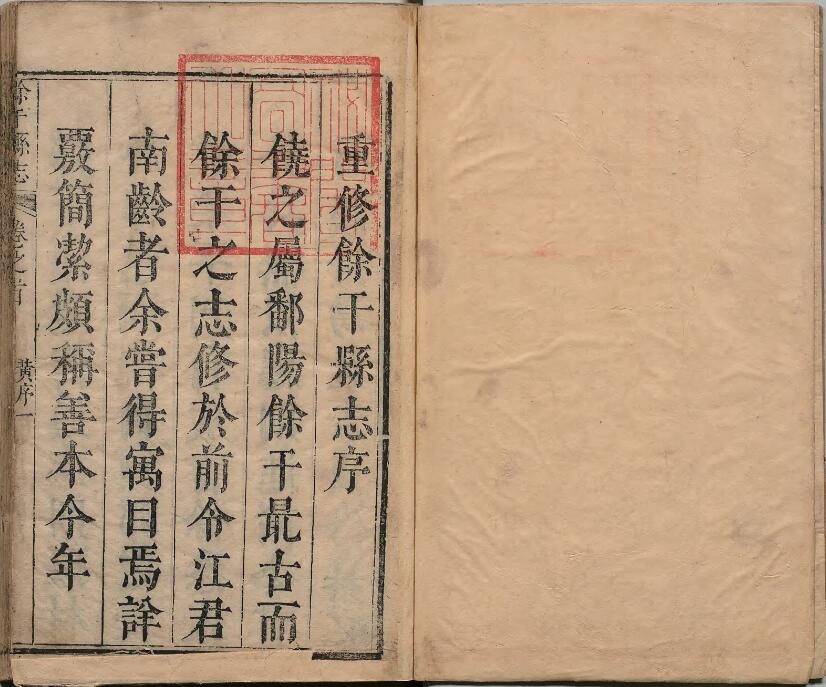 重修餘干縣志序
饒之屬鄱陽餘干最古而
餘干之志修於前令江君
南齡者余嘗得寓目焉詮
覈簡潔頗稱善本今年
餘干縣志 卷之首 黃序一